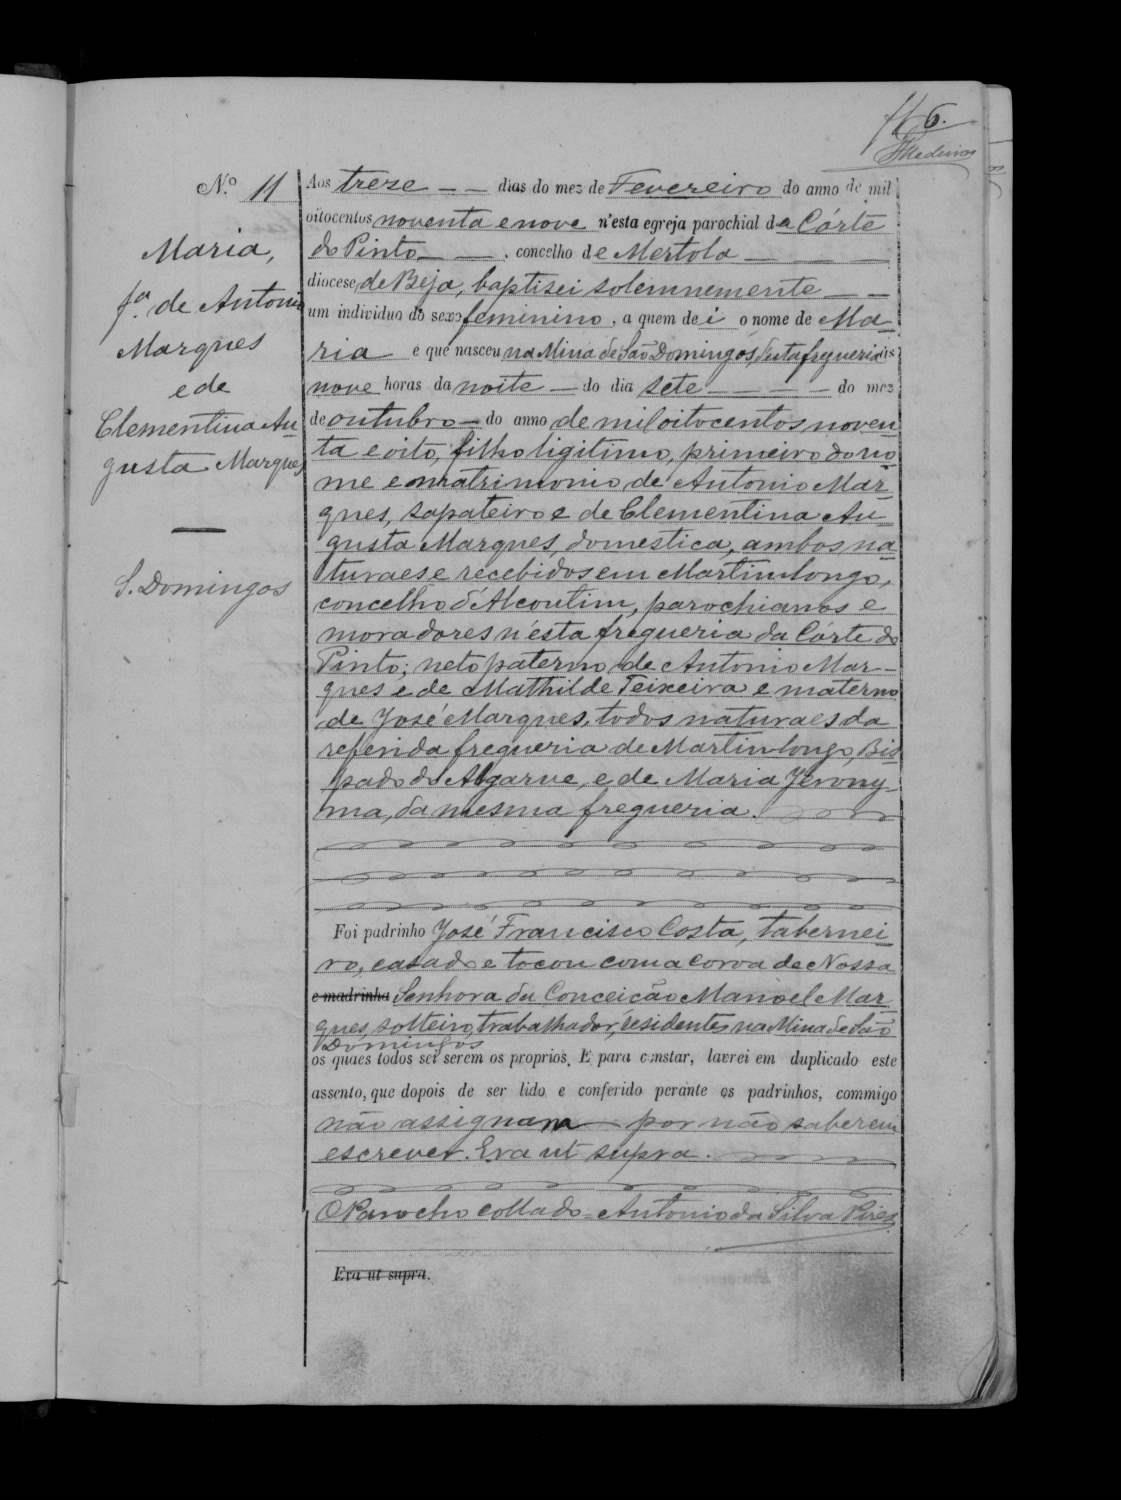 6.
Medeiros
N.º 11
Maria,
f.ª de Antonio
Marques
e de
Clementina Au-
gusta Marques
S. Domingos
Aos treze — — dias do mez de Fevereiro do anno de mil
oitocentos noventa e nove n'esta egreja parochial da Córte
do Pinto — —, concelho de Mertola — — —
diocese de Beja, baptisei solemnemente — —
um individuo do sexo femenino, a quem dei o nome de Ma-
ria e que nasceu na Mina de São Domingos, desta fregueria ás
nove horas da noite — do dia sete — — — — do mez
de outubro — do anno de mil oitocentos noven-
ta e oito, filho ligitimo, primeiro do no-
me e matrimonio de Antonio Mar-
ques, sapateiro e de Clementina Au-
gusta Marques, domestica, ambos na-
turaes e recebidos em Martimlongo,
concelho d'Alcoutim, parochianos e
moradores n'ésta fregueria da Córte do
Pinto; neto paterno de Antonio Mar-
ques e de Mathilde Teixeira e materno
de José Marques, todos naturaes da
referida fregueria de Martimlongo, Bis-
pado do Algarve, e de Maria Jerony-
ma, da mesma fregueria.
Foi padrinho José Francisco Costa, tabernei-
ro, casado e tocou com a coroa de Nossa
e madrinha Senhora da Conceição Manoel Mar-
ques, solteiro, trabalhador, residentes na Mina de São
Domingos
os quaes todos sei serem os proprios. E para constar, lavrei em duplicado este
assento, que dopois de ser lido e conferido perante os padrinhos, commigo
não assignam — por não saberem
escrever. Era ut supra.
O Parocho collado = Antonio da Silva Pires
Era ut supra.